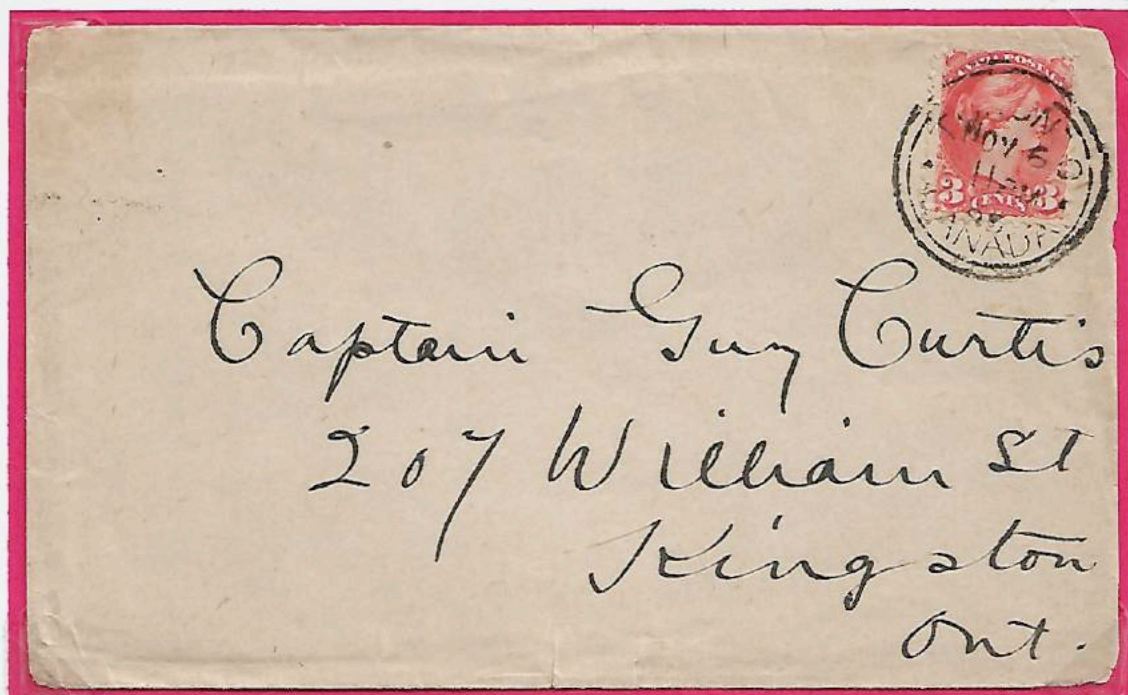 CANADA POSTAGE
TORONTO
NOV 6
11 AM
CANADA
3 CENTS 3
Captain Guy Curtis
207 William St
Kingston
Ont.